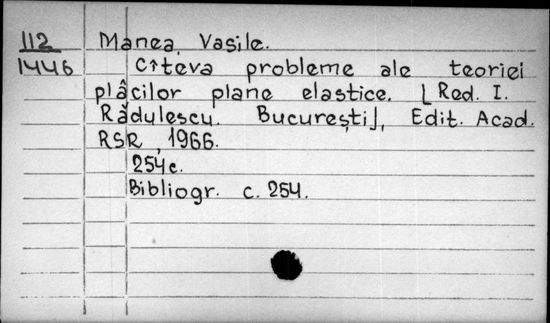 112 Manea, Vasile.
1446 Cîteva probleme ale teoriei
plăcilor plane elastice. [Red. I.
Rădulescu. București], Edit. Acad.
RSR, 1966.
254c.
Bibliogr. c. 254.